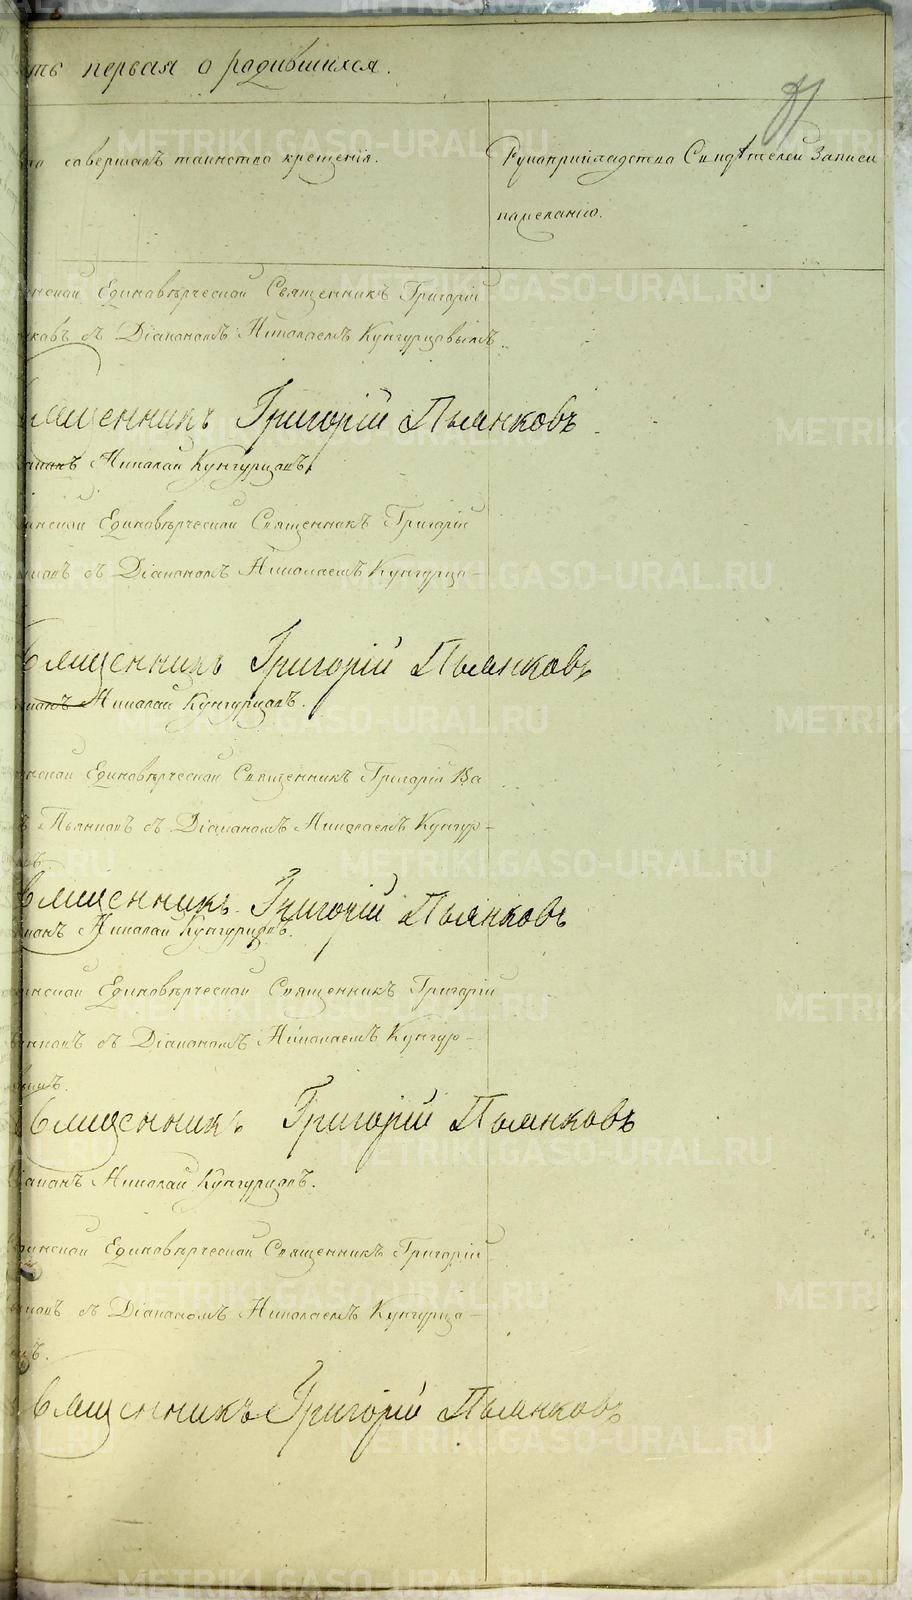 ть первая о родившихся.
совершалъ таинство крещенія.
Рукоприкладство Свидѣтелей Записи
по желанію.
нской Единовѣрческой Священникъ Григорій
ковъ съ Діакономъ Николаемъ Кунгурцовымъ.
Священникъ Григорій Пьянковъ
Николай Кунгурцовъ.
инской Единовѣрческой Священникъ Григорій
нковъ съ Діакономъ Николаемъ Кунгурцо-
Священникъ Григорій Пьянковъ
Николай Кунгурцовъ.
нской Единовѣрческой Священникъ Григорій Ва
Пьянковъ съ Діакономъ Николаемъ Кунгур-
Священникъ Григорій Пьянковъ
Николай Кунгурцовъ.
инской Единовѣрческой Священникъ Григорій
янковъ съ Діакономъ Николаемъ Кунгур-
Священникъ Григорій Пьянковъ
Діаконъ Николай Кунгурцовъ.
инской Единовѣрческой Священникъ Григорій
янковъ съ Діакономъ Николаемъ Кунгурцо-
Священникъ Григорій Пьянковъ
METRIKI.GASO-URAL.RU